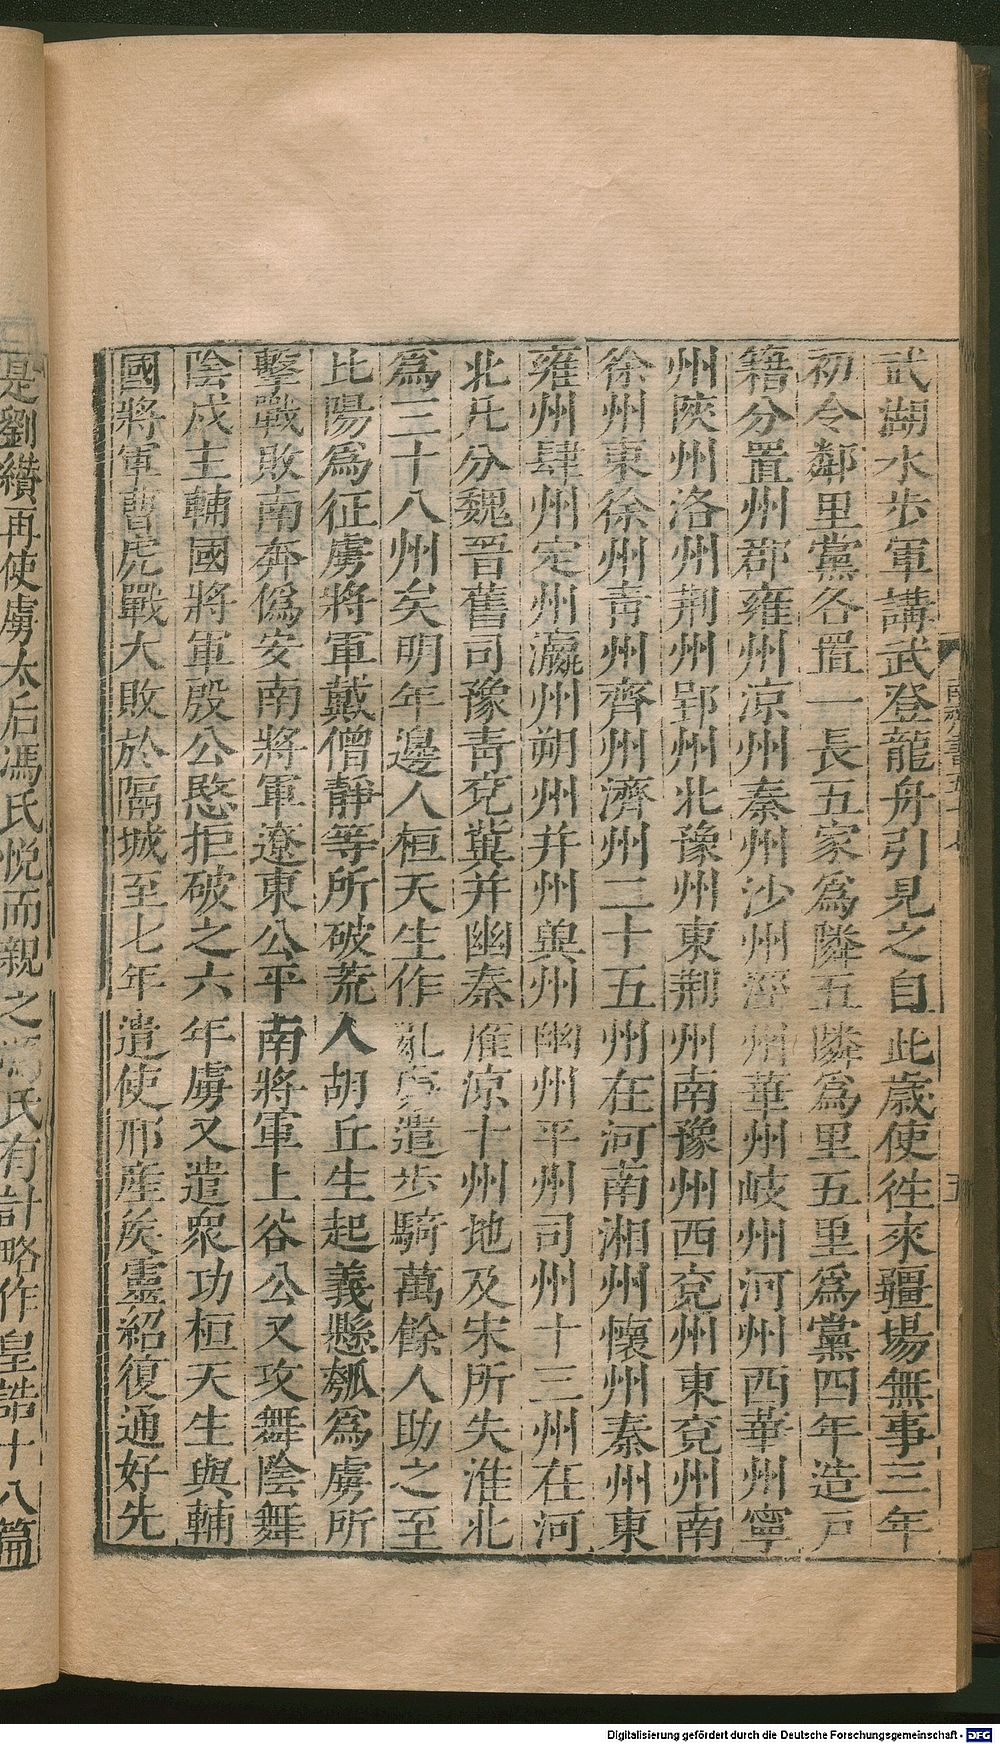 武湖水步軍講武登龍舟引見之自此歲使徃來疆場無事三年
初令鄰里黨各置一長五家爲隣五隣爲里五里爲黨四年造戸
籍分置州郡雍州凉州秦州沙州涇州華州岐州河州西華州寧
州陜州洛州荆州郢州北豫州東荆州南豫州西兗州東兗州南
徐州東徐州靑州齊州濟州二十五州在河南湘州懷州秦州東
雍州肆州定州瀛州朔州并州兾州幽州平州司州十三州在河
北凡分魏晋舊司豫靑兗兾并幽秦雍凉十州地及宋所失淮北
爲三十八州矣明年邊人桓天生作亂遣步騎萬餘人助之至
比陽爲征虜將軍戴僧靜等所破荒人胡丘生起義懸瓠爲虜所
擊戰敗南奔僞安南將軍遼東公平南將軍上谷公又攻舞陰舞
陰戍主輔國將軍殷公愍拒破之六年虜又遣衆功桓天生與輔
國將軍曹虎戰大敗於隔城至七年遣使邢產矦靈紹復通好先
是劉纉再使虜太后馮氏悅而親之馮氏有計略作皇誥十八篇
五
Digitalisierung gefördert durch die Deutsche Forschungsgemeinschaft - DFG